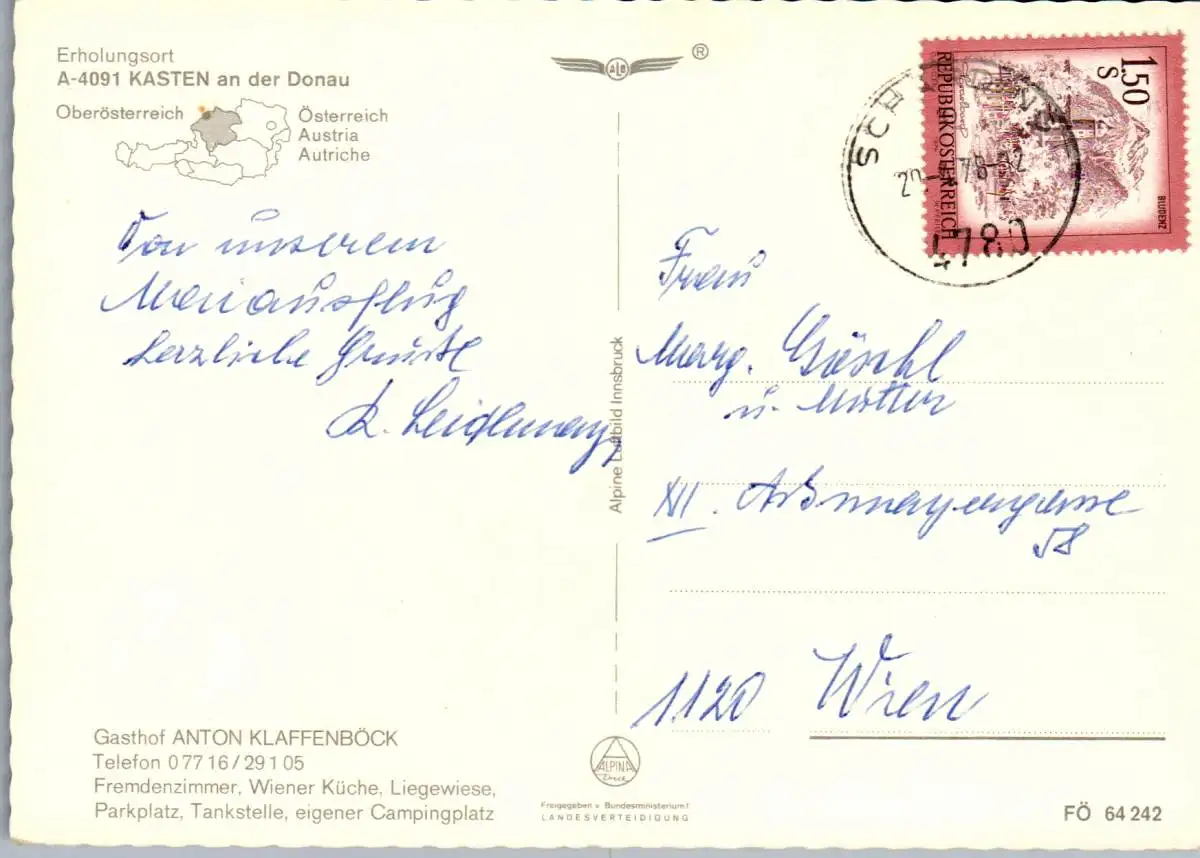 Erholungsort
A-4091 KASTEN an der Donau
Oberösterreich
Österreich
Austria
Autriche
ALB
®
1.50
S
REPUBLIK ÖSTERREICH
BLUDENZ
SCHÄRDING
78-12
4780
Von unserem
Maiausflug
herzliche Grüße
Frau
Marg. Göschl
u. Mutter
XII. Aßmayergasse
58
1120 Wien
Alpine Luftbild Innsbruck
Gasthof ANTON KLAFFENBÖCK
Telefon 0 77 16 / 29 1 05
Fremdenzimmer, Wiener Küche, Liegewiese,
Parkplatz, Tankstelle, eigener Campingplatz
ALPINA
Druck
Freigegeben v. Bundesministerium f.
LANDESVERTEIDIGUNG
FÖ 64 242